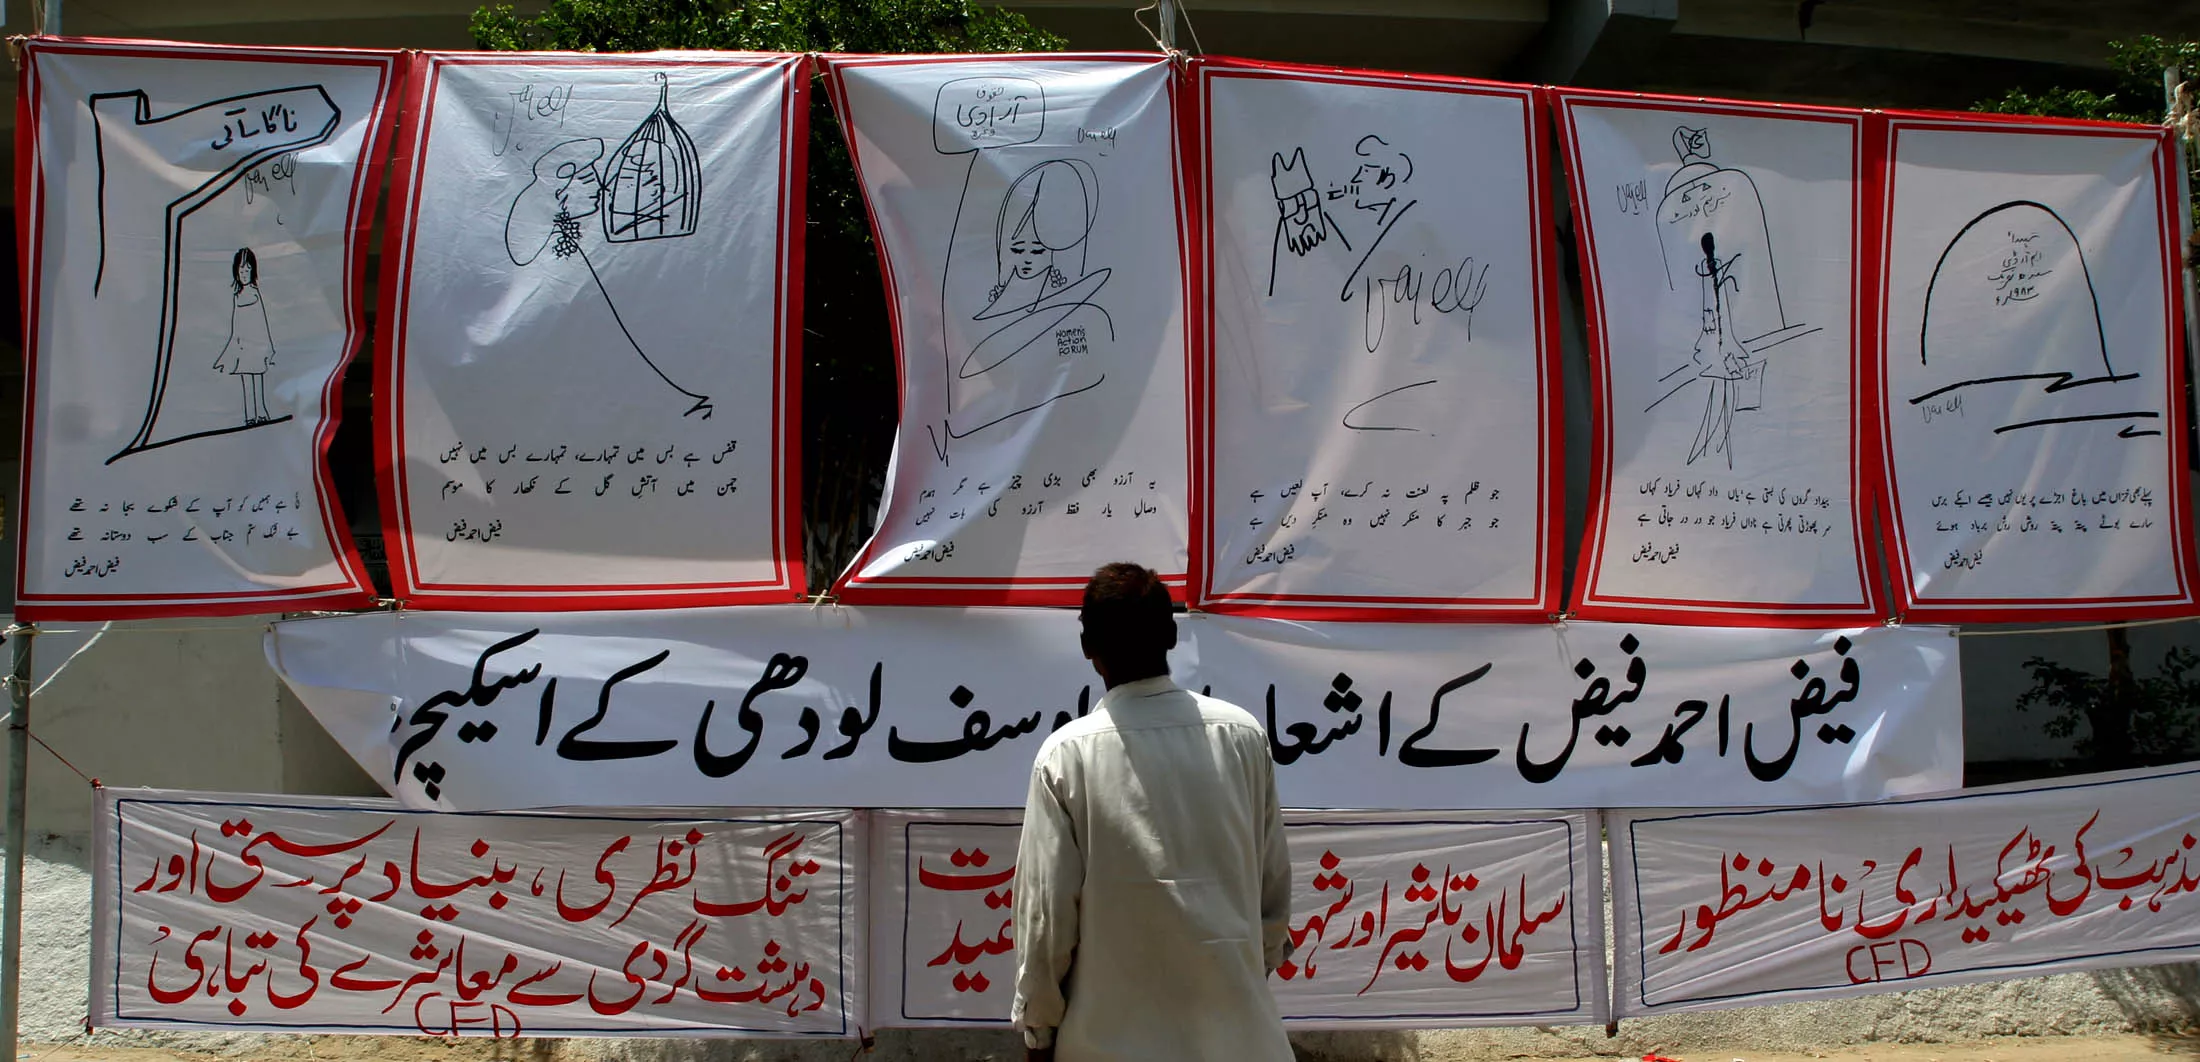 ناگاساکی
Vaiell
ہے ہمیں کو آپ کے شکوے بجا نہ تھے
بے شک ستم جناب کے سب دوستانہ تھے
فیض احمد فیض
Vaiell
قفس ہے بس میں تمہارے، تمہارے بس میں نہیں
چمن میں آتشِ گل کے نکھار کا موسم
فیض احمد فیض
حقوق
آزادی
Vaiell
Women's
Action
FORUM
یہ آرزو بھی بڑی چیز ہے مگر ہمدم
وصالِ یار فقط آرزو کی بات نہیں
فیض احمد فیض
Vaiell
جو ظلم پہ لعنت نہ کرے، آپ لعیں ہے
جو جبر کا منکر نہیں وہ منکرِ دیں ہے
فیض احمد فیض
Vaiell
سپریم کورٹ
بیداد گروں کی بستی ہے یاں داد کہاں فریاد کہاں
سر پھوڑتی پھرتی ہے ناداں فریاد جو در در جاتی ہے
فیض احمد فیض
شہداء
ایم آر ڈی
سندھ تحریک
۱۹۸۳ء
Vaiell
پہلے بھی خزاں میں باغ اجڑے پر یوں نہیں جیسے اب کے برس
سارے بوٹے پتہ پتہ روش روش برباد ہوئے
فیض احمد فیض
فیض احمد فیض کے اشعا یوسف لودھی کے اسکیچز
مذہب کی ٹھیکیداری نا منظور
CFD
سلمان تاثیر اور شہ
تنگ نظری، بنیاد پرستی اور
دہشت گردی سے معاشرے کی تباہی
CFD